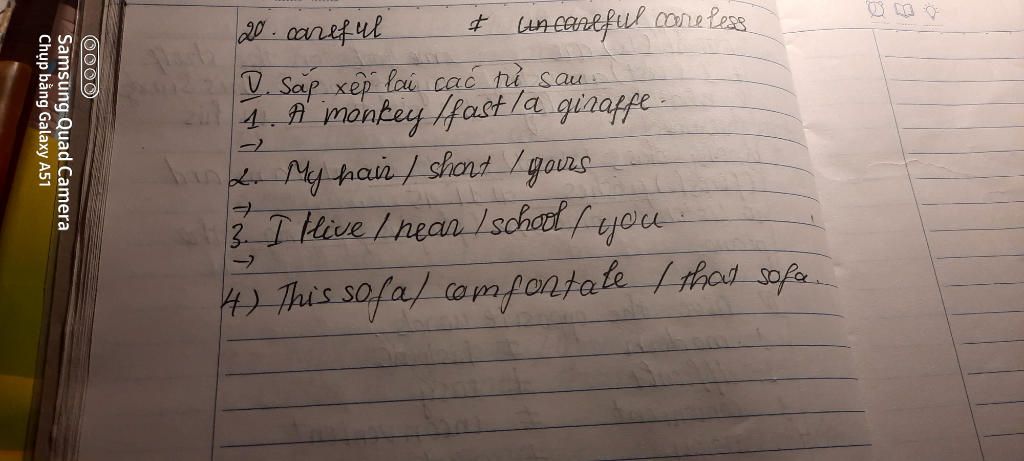 20. careful ≠ uncareful careless
V. Sắp xếp lại các từ sau.
1. A monkey / fast / a giraffe.
→
2. My hair / short / yours
→
3. I live / near / school / you.
→
4) This sofa / comfortable / that sofa.
Samsung Quad Camera
Chụp bằng Galaxy A51